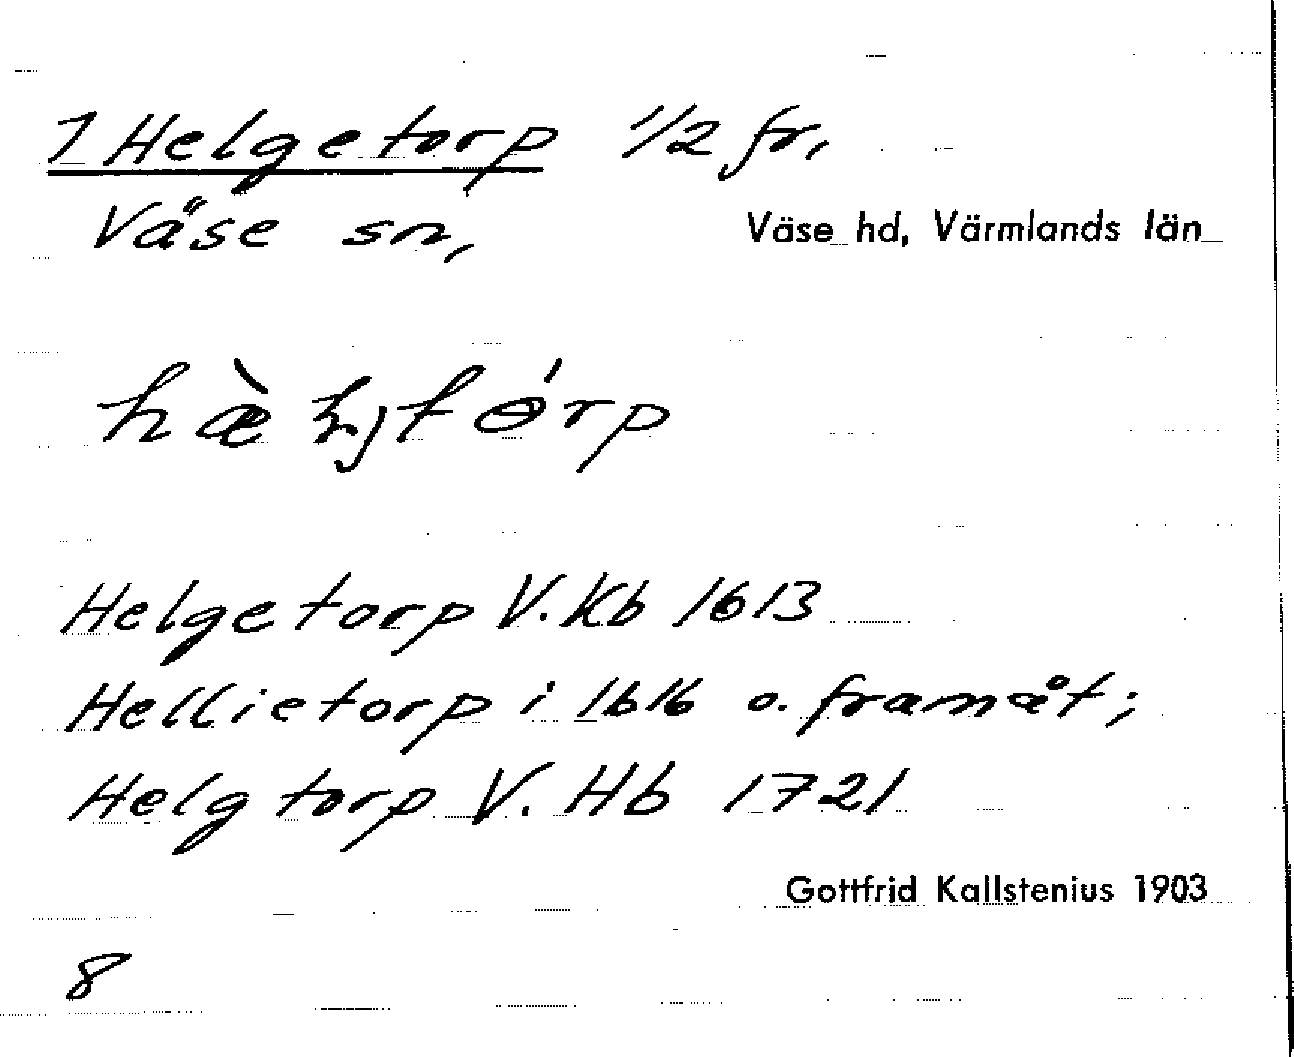 1 Helgetorp 1/2 fr,
Väse sn,
Väse hd, Värmlands län
Helgetorp V. Kb 1613
Hellietorp i 1616 o. framåt;
Helgtorp V. Hb 1721
Gottfrid Kallstenius 1903
8